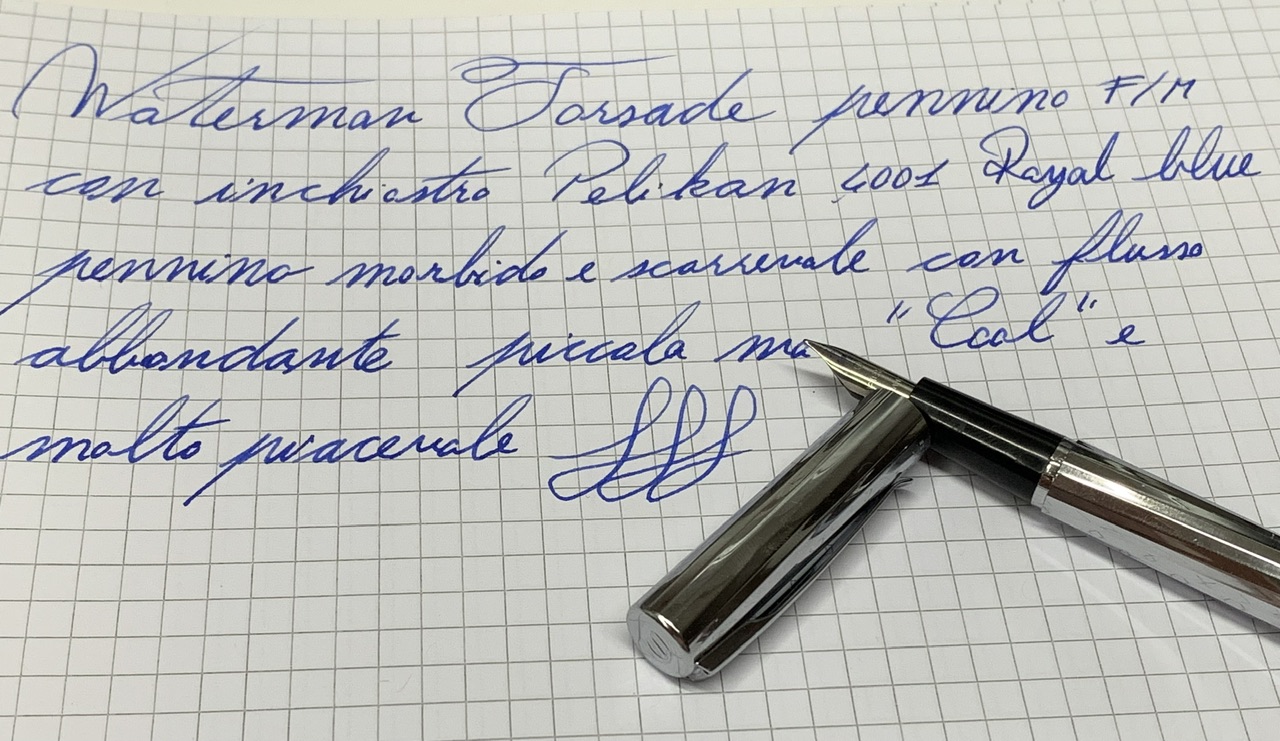 Waterman Torsade pennino F/M
con inchiostro Pelikan 4001 Royal blue
pennino morbido e scorrevole con flusso
abbondante piccola ma "Cool" e
molto piacevole